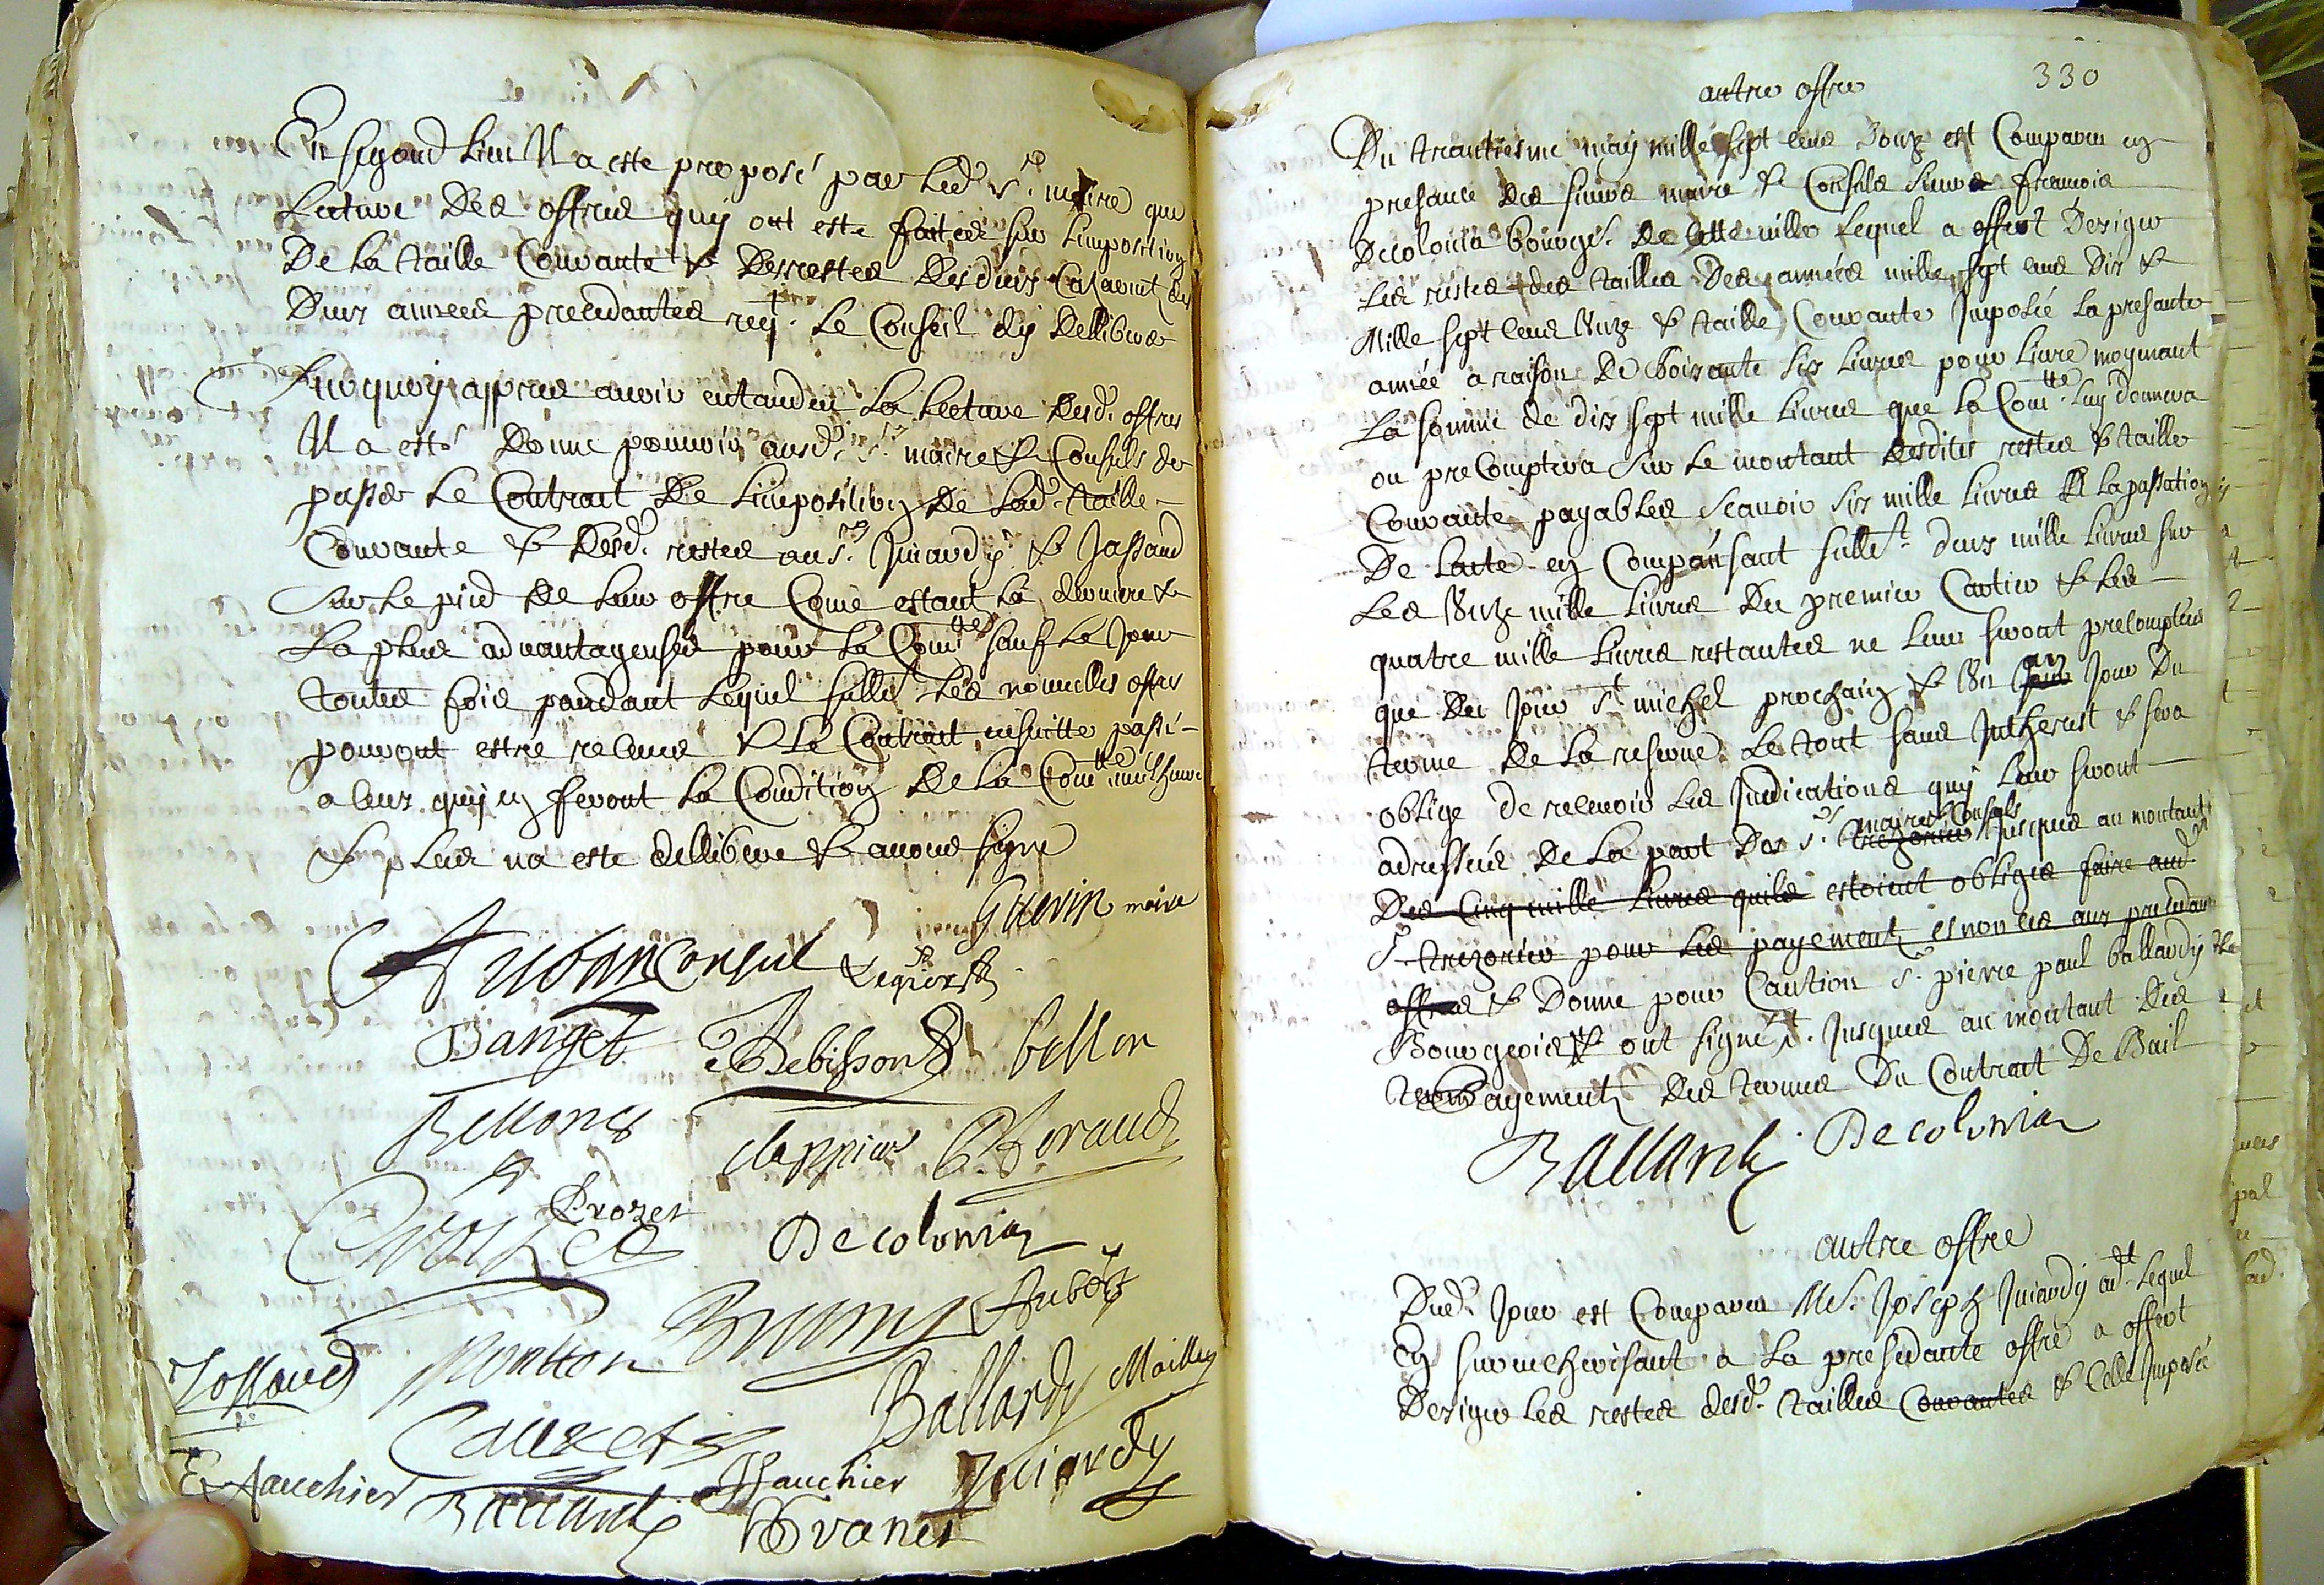 En segond lieu Il a este proposé par led. sr. maire que
lecture des offres quy ont este faites sur limposition
De la taille Courante & des restes des diux Cazaernet des
Deux années precedantes reqt. le Conseil dy dellibérer
Sur quoy appres avoir entandeu la lecture desd. offres
Il a esté donne pouvoir ausd. srs. maire & Consuls de
passer le Contrant de limposition de lad. taille
Courante & desd. restes au sr. Juiardy & Jassaud
sur le pied de leur offre Come estant la derniere &
la plus advantageuse pour la Comtte. sauf le jour
toutes fois pandant lequel les nouvelles offres
pouront estre receues & le Contrant ensuitte passé
a ceux quy en feront la Condition de la Comtte. milheure
& plus na este dellibere & avons signé
Guerin maire
Auban Consul
Banget Debisson bellon
Bellong clappier C. Feraud
Crozet
Decolonia
Jossaud Moutton Brun Aubert
Ballardy Mailley
Cauzet
E Fauchier Fauchier Juiardy
Ballardy Evanet
330
autre offre
Du trantiesme may mille sept cens douze est Compareu en
presance des sieurs maire & Consuls sieur francois
Decolonia bourgs. de cette ville lequel a offert dexiger
les restes des tailles des années mille sept cens dix &
mille sept cens Unze & taille Courante Imposée la presante
année a raison de soixante six livres pour livre moyenant
la somme de dix sept mille livres que la Comtte. luy donnera
ou preComptera sur le montant desdites restes & taille
Courante payables scavoir six mille livres a la passation
de lacte en Compansant deux mille livres sur
les Unze mille livres du premier Cartier & les
quatre mille livres restantes ne leur seront precomptées
que du jour st. michel prochain & Un an jour du
terme de la reserve le tout sans Intherest & sera
oblige de recevoir les Indications quy leur seront
adressées de la part des srs. trezorier maire Consuls jusques au montant
des Cinq mille livres quils estoint obliges faire aud.
sr. trezorier pour les payement enonces aux precedan
offres & donne pour Caution sr. pierre paul ballardy
Bourgeois & ont signé. jusques au montant des
payement des termes du Contrant de Bail
Ballardy Decolonia
autre offre
Dud. jour est Compareu Me. Joseph Juiardy adt. lequel
en surencherissant a la presedante offre a offert
dexiger les restes desd. tailles Courantes & celle Imposée